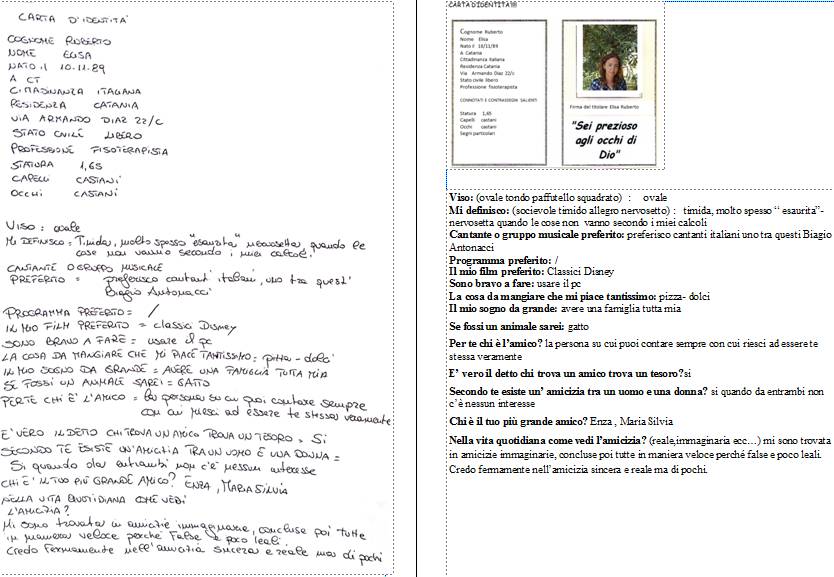 CARTA D'IDENTITA'
COGNOME RUBERTO
NOME ELISA
NATO il 10.11.89
A CT
CITTADINANZA ITALIANA
RESIDENZA CATANIA
VIA ARMANDO DIAZ 22/C
STATO CIVILE LIBERO
PROFESSIONE FISOTERAPISTA
STATURA 1,65
CAPELLI CASTANI
OCCHI CASTANI
VISO : ovale
MI DEFINISCO = Timida, molto spesso "esaurita" nervosetta, quando le
cose non vanno secondo i miei calcoli.
CANTANTE O GRUPPO MUSICALE
PREFERITO = preferisco cantanti italiani, uno tra questi
Biagio Antonacci
PROGRAMMA PREFERITO = /
IL MIO FILM PREFERITO = classici Disney
SONO BRAVO A FARE = usare il pc
LA COSA DA MANGIARE CHE MI PIACE TANTISSIMO: pizza - dolci
IL MIO SOGNO DA GRANDE = AVERE UNA FAMIGLIA TUTTA MIA
SE FOSSI UN ANIMALE SAREI = GATTO
PER TE CHI E' L'AMICO = la persona su cui puoi contare sempre
con cui riesci ad essere te stessa veramente
E' VERO IL DETTO CHI TROVA UN AMICO TROVA UN TESORO = SI
SECONDO TE ESISTE UN'AMICIZIA TRA UN UOMO E UNA DONNA =
Si quando da entrambi non c'è nessun interesse
CHI E' IL TUO PIÙ GRANDE AMICO? ENZA, MARIA SILVIA
NELLA VITA QUOTIDIANA COME VEDI
L'AMICIZIA?
Mi sono trovata in amicizie immaginarie, concluse poi tutte
in maniera veloce perché false e poco leali.
Credo fermamente nell'amicizia sincera e reale ma di pochi
CARTA D'IDENTITA'!!!
Cognome Ruberto
Nome Elisa
Nato il 10/11/89
A Catania
Cittadinanza Italiana
Residenza Catania
Via Armando Diaz 22/c
Stato civile libero
Professione fisioterapista
CONNOTATI E CONTRASSEGNI SALIENTI
Statura 1,65
Capelli castani
Occhi castani
Segni particolari
Firma del titolare Elisa Ruberto
"Sei prezioso
agli occhi di
Dio"
Viso: (ovale tondo paffutello squadrato) : ovale
Mi definisco: (socievole timido allegro nervosetto) : timida, molto spesso " esaurita"-
nervosetta quando le cose non vanno secondo i miei calcoli
Cantante o gruppo musicale preferito: preferisco cantanti italiani uno tra questi Biagio
Antonacci
Programma preferito: /
Il mio film preferito: Classici Disney
Sono bravo a fare: usare il pc
La cosa da mangiare che mi piace tantissimo: pizza- dolci
Il mio sogno da grande: avere una famiglia tutta mia
Se fossi un animale sarei: gatto
Per te chi è l'amico? la persona su cui puoi contare sempre con cui riesci ad essere te
stessa veramente
E' vero il detto chi trova un amico trova un tesoro?si
Secondo te esiste un' amicizia tra un uomo e una donna? si quando da entrambi non
c'è nessun interesse
Chi è il tuo più grande amico? Enza , Maria Silvia
Nella vita quotidiana come vedi l'amicizia? (reale,immaginaria ecc…) mi sono trovata
in amicizie immaginarie, concluse poi tutte in maniera veloce perché false e poco leali.
Credo fermamente nell'amicizia sincera e reale ma di pochi.